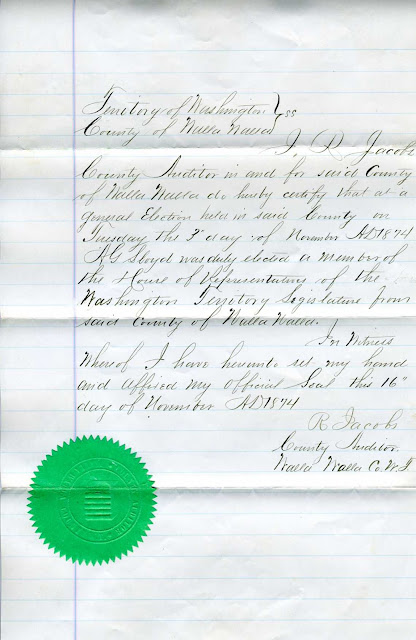 Territory of Washington } ss
County of Walla Walla
I, R Jacobs
County Auditor in and for said County
of Walla Walla do hereby certify that at a
general Election held in said County on
Tuesday the 3" day of November AD 1874
A G Lloyd was duly elected a member of
the House of Representatives of the
Washington Territory Legislature from
said County of Walla Walla.
In Witness
Whereof I have hereunto set my hand
and Affixed my Official Seal this 16"
day of November AD 1874
R Jacobs
County Auditor.
Walla Walla Co. W. T.